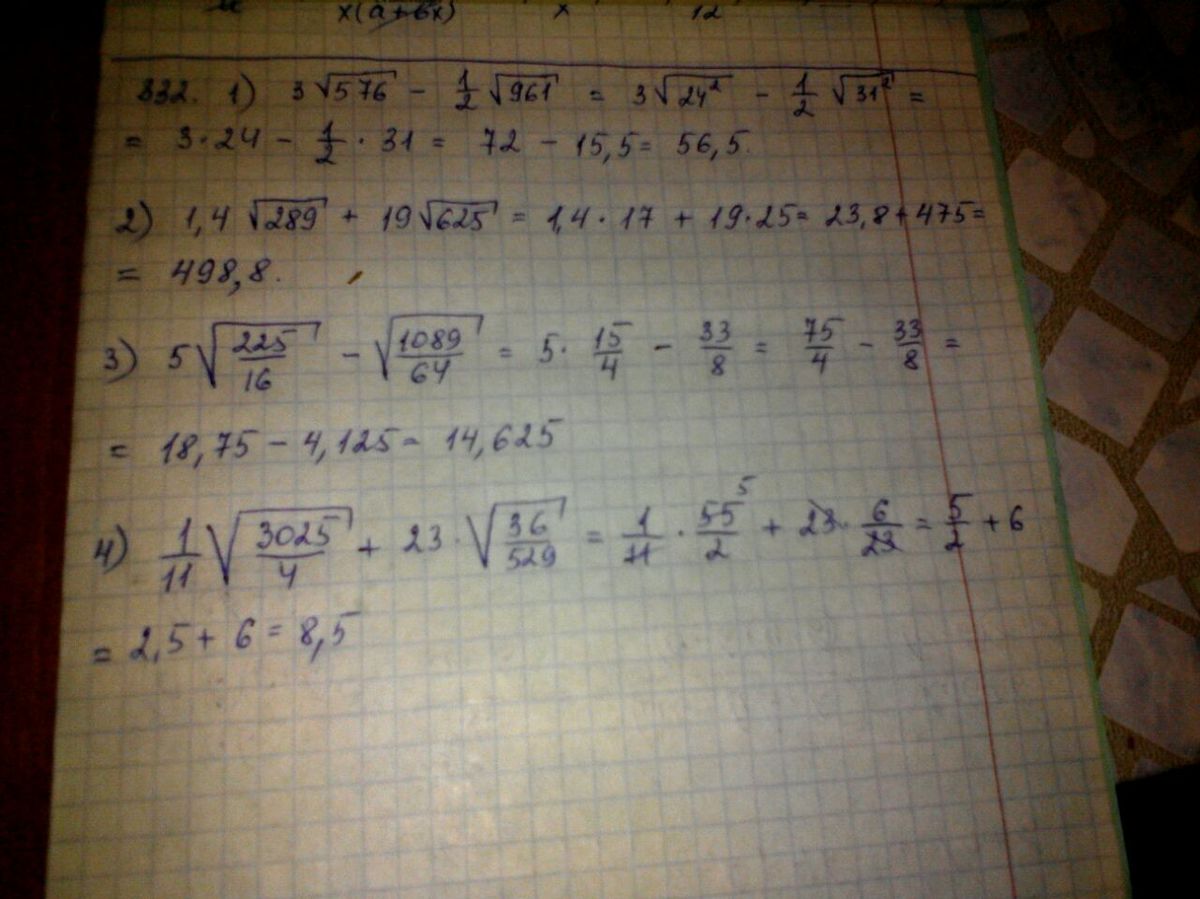 x(a+bx) x 12
332. 1) 3√576 - 1/2 √961 = 3√24² - 1/2 √31² =
= 3·24 - 1/2 · 31 = 72 - 15,5 = 56,5.
2) 1,4 √289 + 19√625 = 1,4·17 + 19·25 = 23,8+475=
= 498,8.
3) 5√(225/16) - √(1089/64) = 5· 15/4 - 33/8 = 75/4 - 33/8 =
= 18,75 - 4,125 = 14,625
4) 1/11 √(3025/4) + 23·√(36/529) = 1/11 · 55/2 5 + 23· 6/23 = 5/2 + 6
= 2,5 + 6 = 8,5